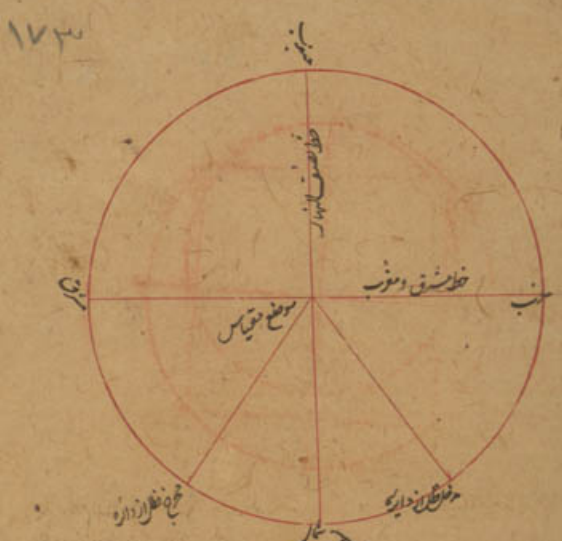 ۱۷۳
جنوب
خط نصف النهار
خط مشرق و مغرب
مغرب
مشرق
موضع مقیاس
مدخل ظل از دایره
مخرج ظل از دایره
شمال